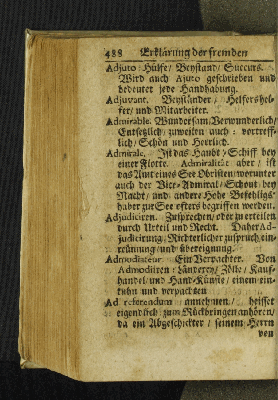 488 Erklärung der fremden
Adjuto. Hülffe/ Beystand/ Succurs.
Wird auch Ajuto geschrieben und
bedeutet jede Handhabung.
Adjuvant. Beyständer/ Helffershel-
fer/ und Mitarbeiter.
Admirable. Wundersam/Verwunderlich/
Entsetzlich/ zuweilen auch: vortreff-
lich/ Schön und Herrlich.
Admirale, Ist das Haubt-Schiff bey
einer Flotte. Admiralität aber/ ist
das Amt eines See Obristen/worunter
auch der Vice-Admiral/ Schout bey
Nacht/ und andere Hohe Befehligs-
haber zur See öfters begriffen werden.
Adjudiciren. Zusprechen/oder zuertheilen
durch Urteil und Recht. Daher Ad-
judicirung/ Richterlicher zuspruch/ein-
reümung/ und übereignung.
Admodiateur. Ein Verpachter. Von
Admodiiren: Länderey/ Zölle/ Kauf-
handel und Hand-Künste/ einem ein-
tuhn und verpachten
Ad referendum annehmen/ heisset
eigendlich zum Rückbringen anhören/
da ein Abgeschickter/ seinem Herrn
von